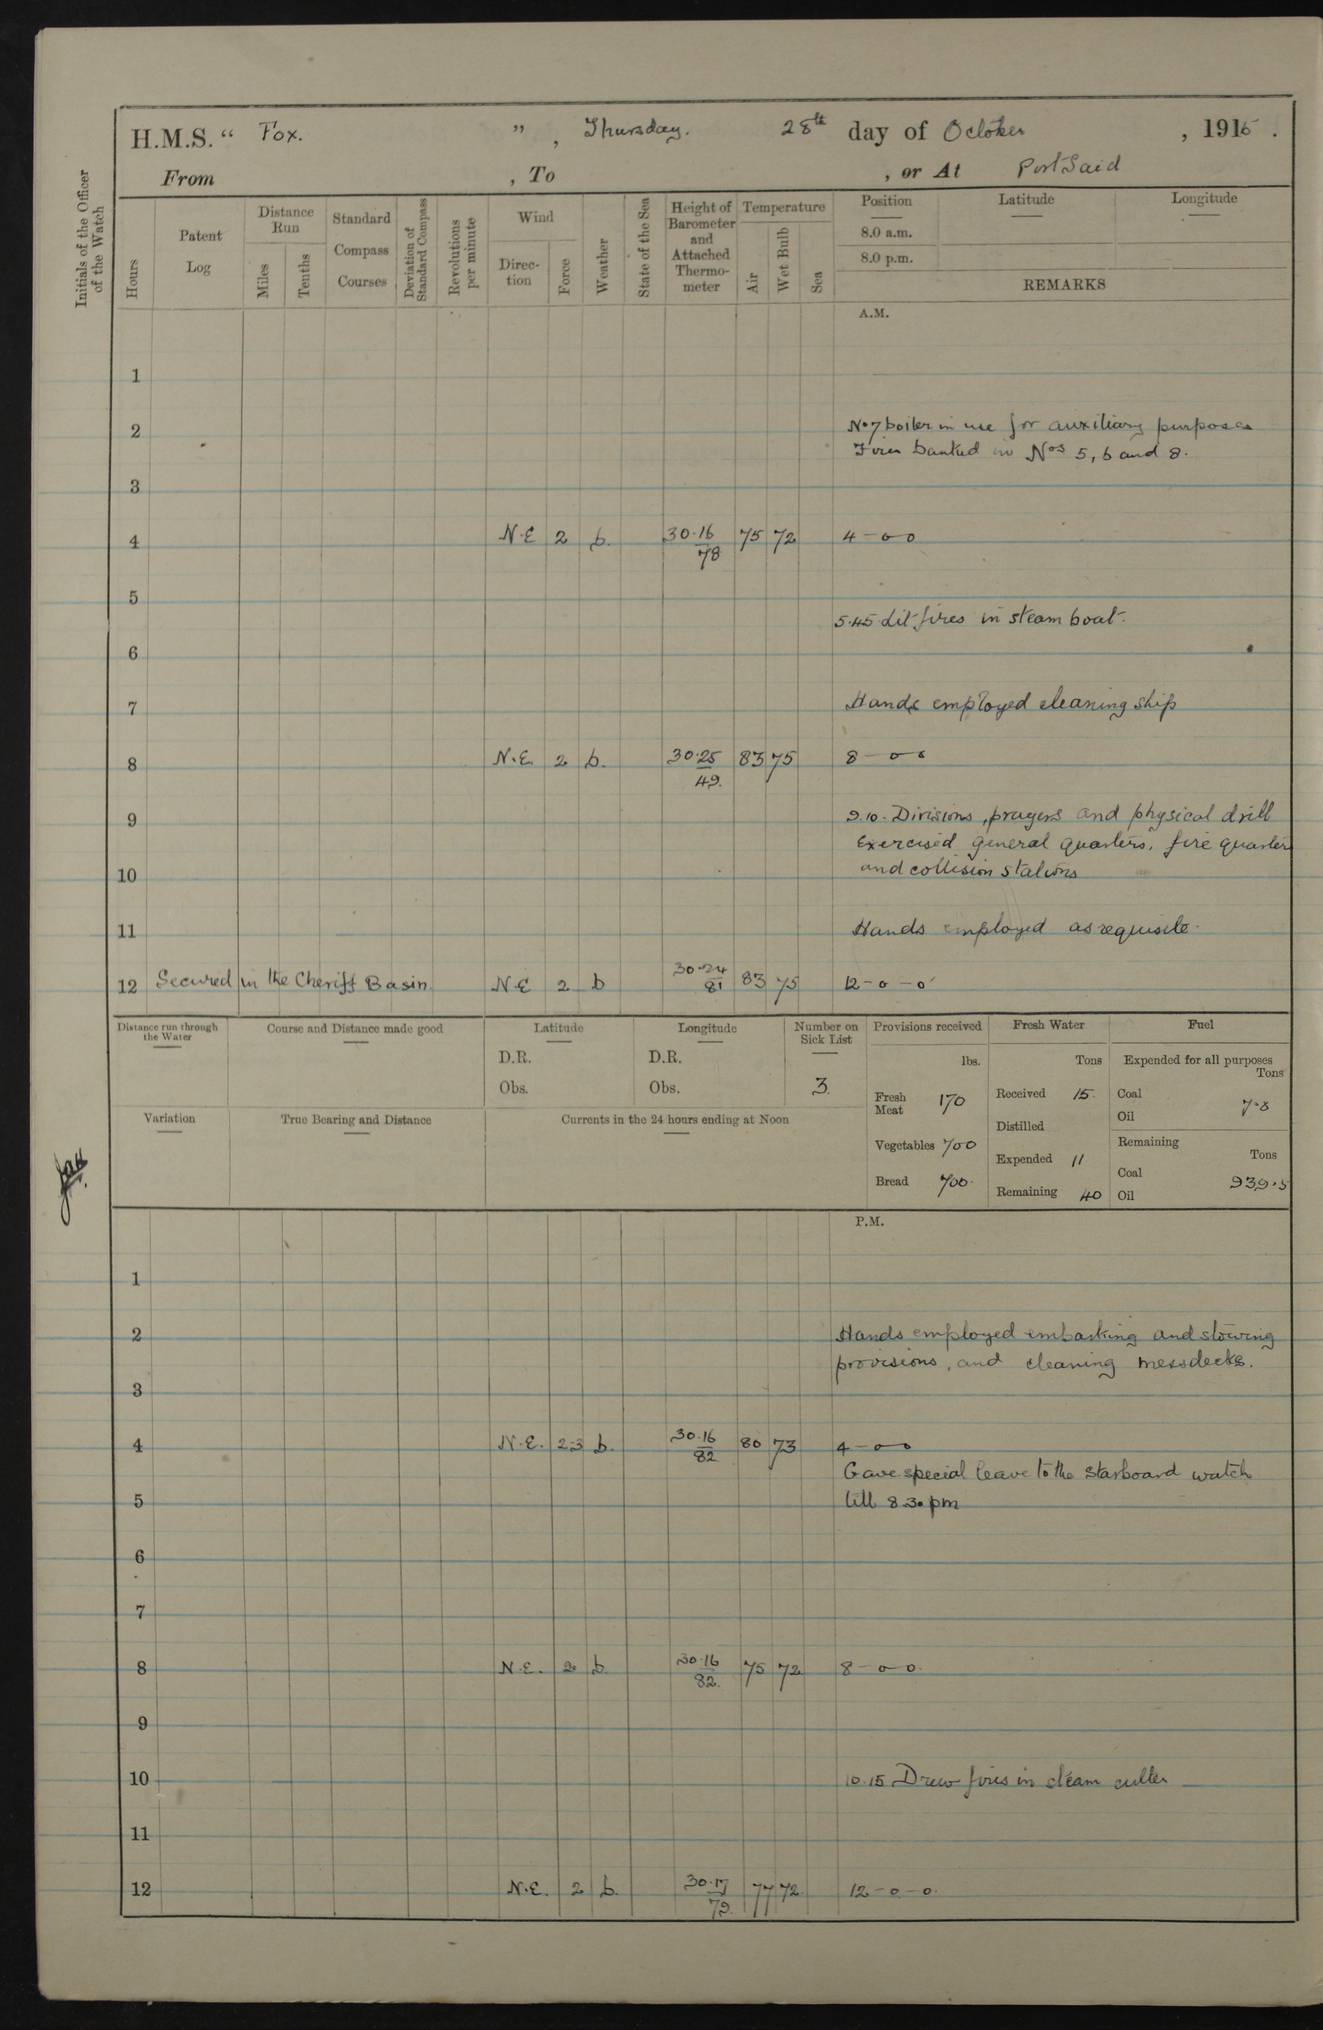 H.M.S. “ Fox. ” , Thursday. 28th day of October , 1915 .
From , To , or At Port Said
Initials of the Officer of the Watch
Hours
Patent Log
Distance Run
Miles
Tenths
Standard Compass Courses
Deviation of Standard Compass
Revolutions per minute
Wind
Direc-tion
Force
Weather
State of the Sea
Height of Barometer and Attached Thermo-meter
Temperature
Air
Wet Bulb
Sea
Position
8.0 a.m.
8.0 p.m.
Latitude
Longitude
REMARKS
A.M.
1
2 No 7 boiler in use for auxiliary purposes
Fires banked in Nos 5, 6 and 8.
3
4 N.E 2 b. 30.16 78 75 72 4 - o o
5
5.45 Lit fires in steam boat.
6
7 Hands employed cleaning ship
8 N.E. 2 b. 30.25 49. 83 75 8 - o o
9 9.10. Divisions, prayers and physical drill
Exercised general quarters, fire quarters
10 and collision stations
11 Hands employed as requisite.
12 Secured in the Cheriff Basin. N.E 2 b 30.24 81 83 75 12 - o - o
Distance run through the Water
Course and Distance made good
Latitude
D.R.
Obs.
Longitude
D.R.
Obs.
Number on Sick List
3
Provisions received
lbs.
Fresh Meat 170
Vegetables 700
Bread 700.
Fresh Water
Tons
Received 15.
Distilled
Expended 11
Remaining 40
Fuel
Expended for all purposes
Tons
Coal
Oil
7.8
Remaining
Tons
Coal
Oil
939.5
Variation
True Bearing and Distance
Currents in the 24 hours ending at Noon
P.M.
1
2 Hands employed embarking and stowing
provisions, and cleaning messdecks.
3
4 N.E. 2-3 b. 30.16 82 80 73 4 - o o
Gave special leave to the starboard watch
5 till 8.30 pm
6
7
8 N.E. 2 b. 30.16 82. 75 72 8 - o o.
9
10 10.15 Drew fires in steam cutter
11
12 N.E. 2 b. 30.17 79. 77 72 12 - o - o.